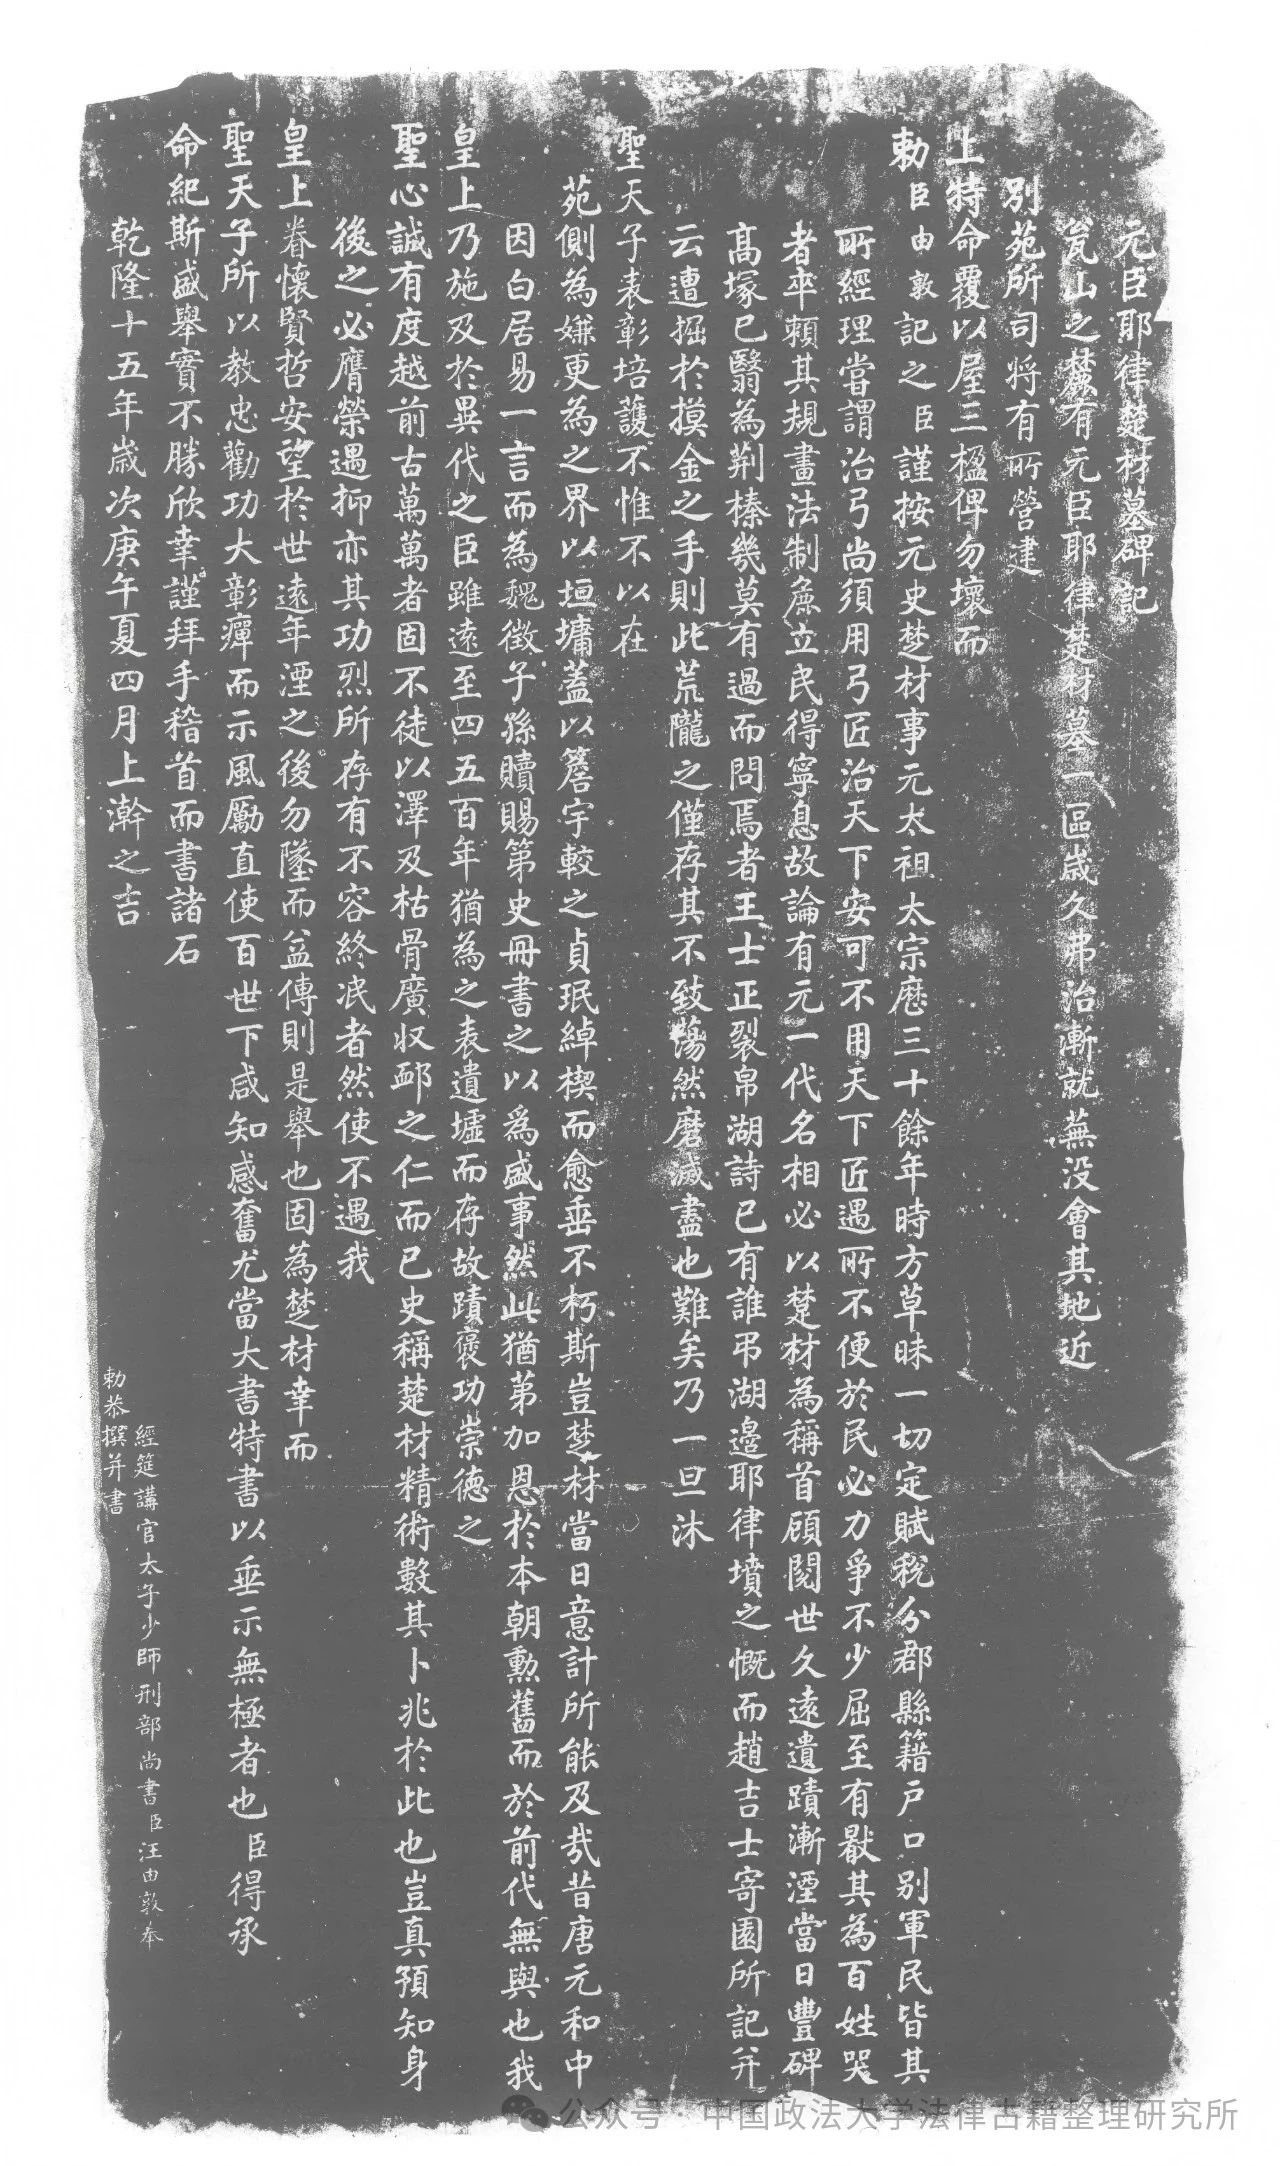 元臣耶律楚材墓碑記
瓮山之麓有元臣耶律楚材墓一區歲久弗治漸就蕪没會其地近
別苑所司將有所營建
上特命覆以屋三楹俾勿壞而
勅臣由敦記之臣謹按元史楚材事元太祖太宗歷三十餘年時方草昧一切定賦稅分郡縣籍戶口別軍民皆其
所經理嘗謂治弓尚須用弓匠治天下安可不用天下匠遇所不便於民必力爭不少屈至有厭其為百姓哭
者卒賴其規畫法制麁立民得寧息故論有元一代名相必以楚材為稱首顧閱世久遠遺蹟漸湮當日豐碑
高塚已翳為荆榛幾莫有過而問焉者王士正裂帛湖詩已有誰弔湖邊耶律墳之慨而趙吉士寄園所記并
云遭掘於摸金之手則此荒隴之僅存其不致蕩然磨滅盡也難矣乃一旦沐
聖天子表彰培護不惟不以在
苑側為嫌更為之界以垣墉蓋以簷宇較之貞珉綽楔而愈垂不朽斯豈楚材當日意計所能及哉昔唐元和中
因白居易一言而為魏徵子孫贖賜第史冊書之以為盛事然此猶第加恩於本朝勲舊而於前代無與也我
皇上乃施及於異代之臣雖遠至四五百年猶為之表遺墟而存故蹟褒功崇德之
聖心誠有度越前古萬萬者固不徒以澤及枯骨廣收邺之仁而已史稱楚材精術數其卜兆於此也豈真預知身
後之必膺榮遇抑亦其功烈所存有不容終泯者然使不遇我
皇上眷懷賢哲安望於世遠年湮之後勿墜而益傳則是舉也固為楚材幸而
聖天子所以教忠勸功大彰癉而示風勵直使百世下咸知感奮尤當大書特書以垂示無極者也臣得承
命紀斯盛舉實不勝欣幸謹拜手稽首而書諸石
乾隆十五年歲次庚午夏四月上澣之吉
經筵講官太子少師刑部尚書臣汪由敦奉
勅恭撰并書
公众号·中国政法大学法律古籍整理研究所